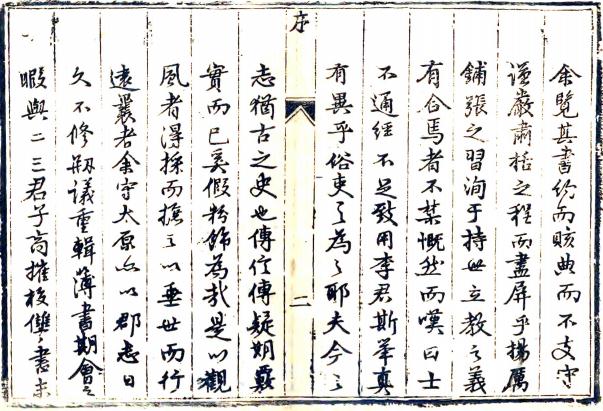 余覽其書約而賅典而不支守
謹嚴肅括之程而盡屏乎揚厲
鋪張之習洵于持世立教之義
有合焉者不禁慨然而嘆曰士
不通經不足致用李君斯舉真
有異乎俗吏之為之耶夫今之
序
二
志猶古之史也傳信傳疑期覈
實而已奚假粉飾為哉是以觀
風者得採而撫之以垂世而行
遠曩者余守太原亦以郡志日
久不修剏議重輯簿書期會之
暇與二三君子商搉校讎書未